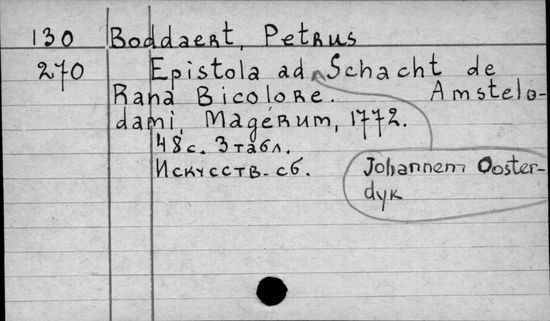 130 Boddaert, Petrus
270 Epistola ad Schacht de
Rana Bicolore. Amstelo-
dami, Magérum, 1772.
48 с. 3 табл.
Искусств. сб.
Johannem Ooster-
dyk